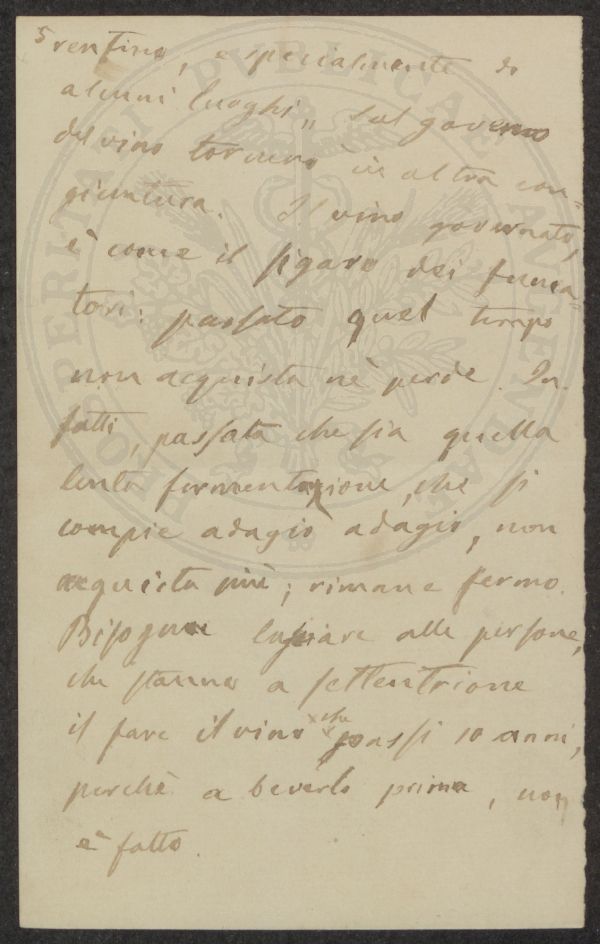 5 rentino, e specialmente di
alcuni luoghi „ Sul governo
del vino tornerò in altra con=
giuntura. Il vino governato,
è come il sigaro dei fuma=
tori: passato quel tempo
non acquista nè perde. In=
fatti, passata che sia quella
lenta fermentazione, che si
compie adagio adagio, non
acquista più; rimane fermo.
Bisogna lasciare alle persone,
che stanno a settentrione
il fare il vino che passi 10 anni,
perchè a beverlo prima, non
è fatto.
HEOS PERITA SI PVBLICAE ANCENDAE